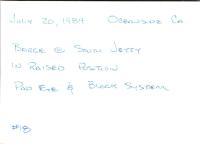 July 20, 1984 Oceanside Ca
Barge @ South Jetty
in Raised Position
Pad Eye & Block System
#18